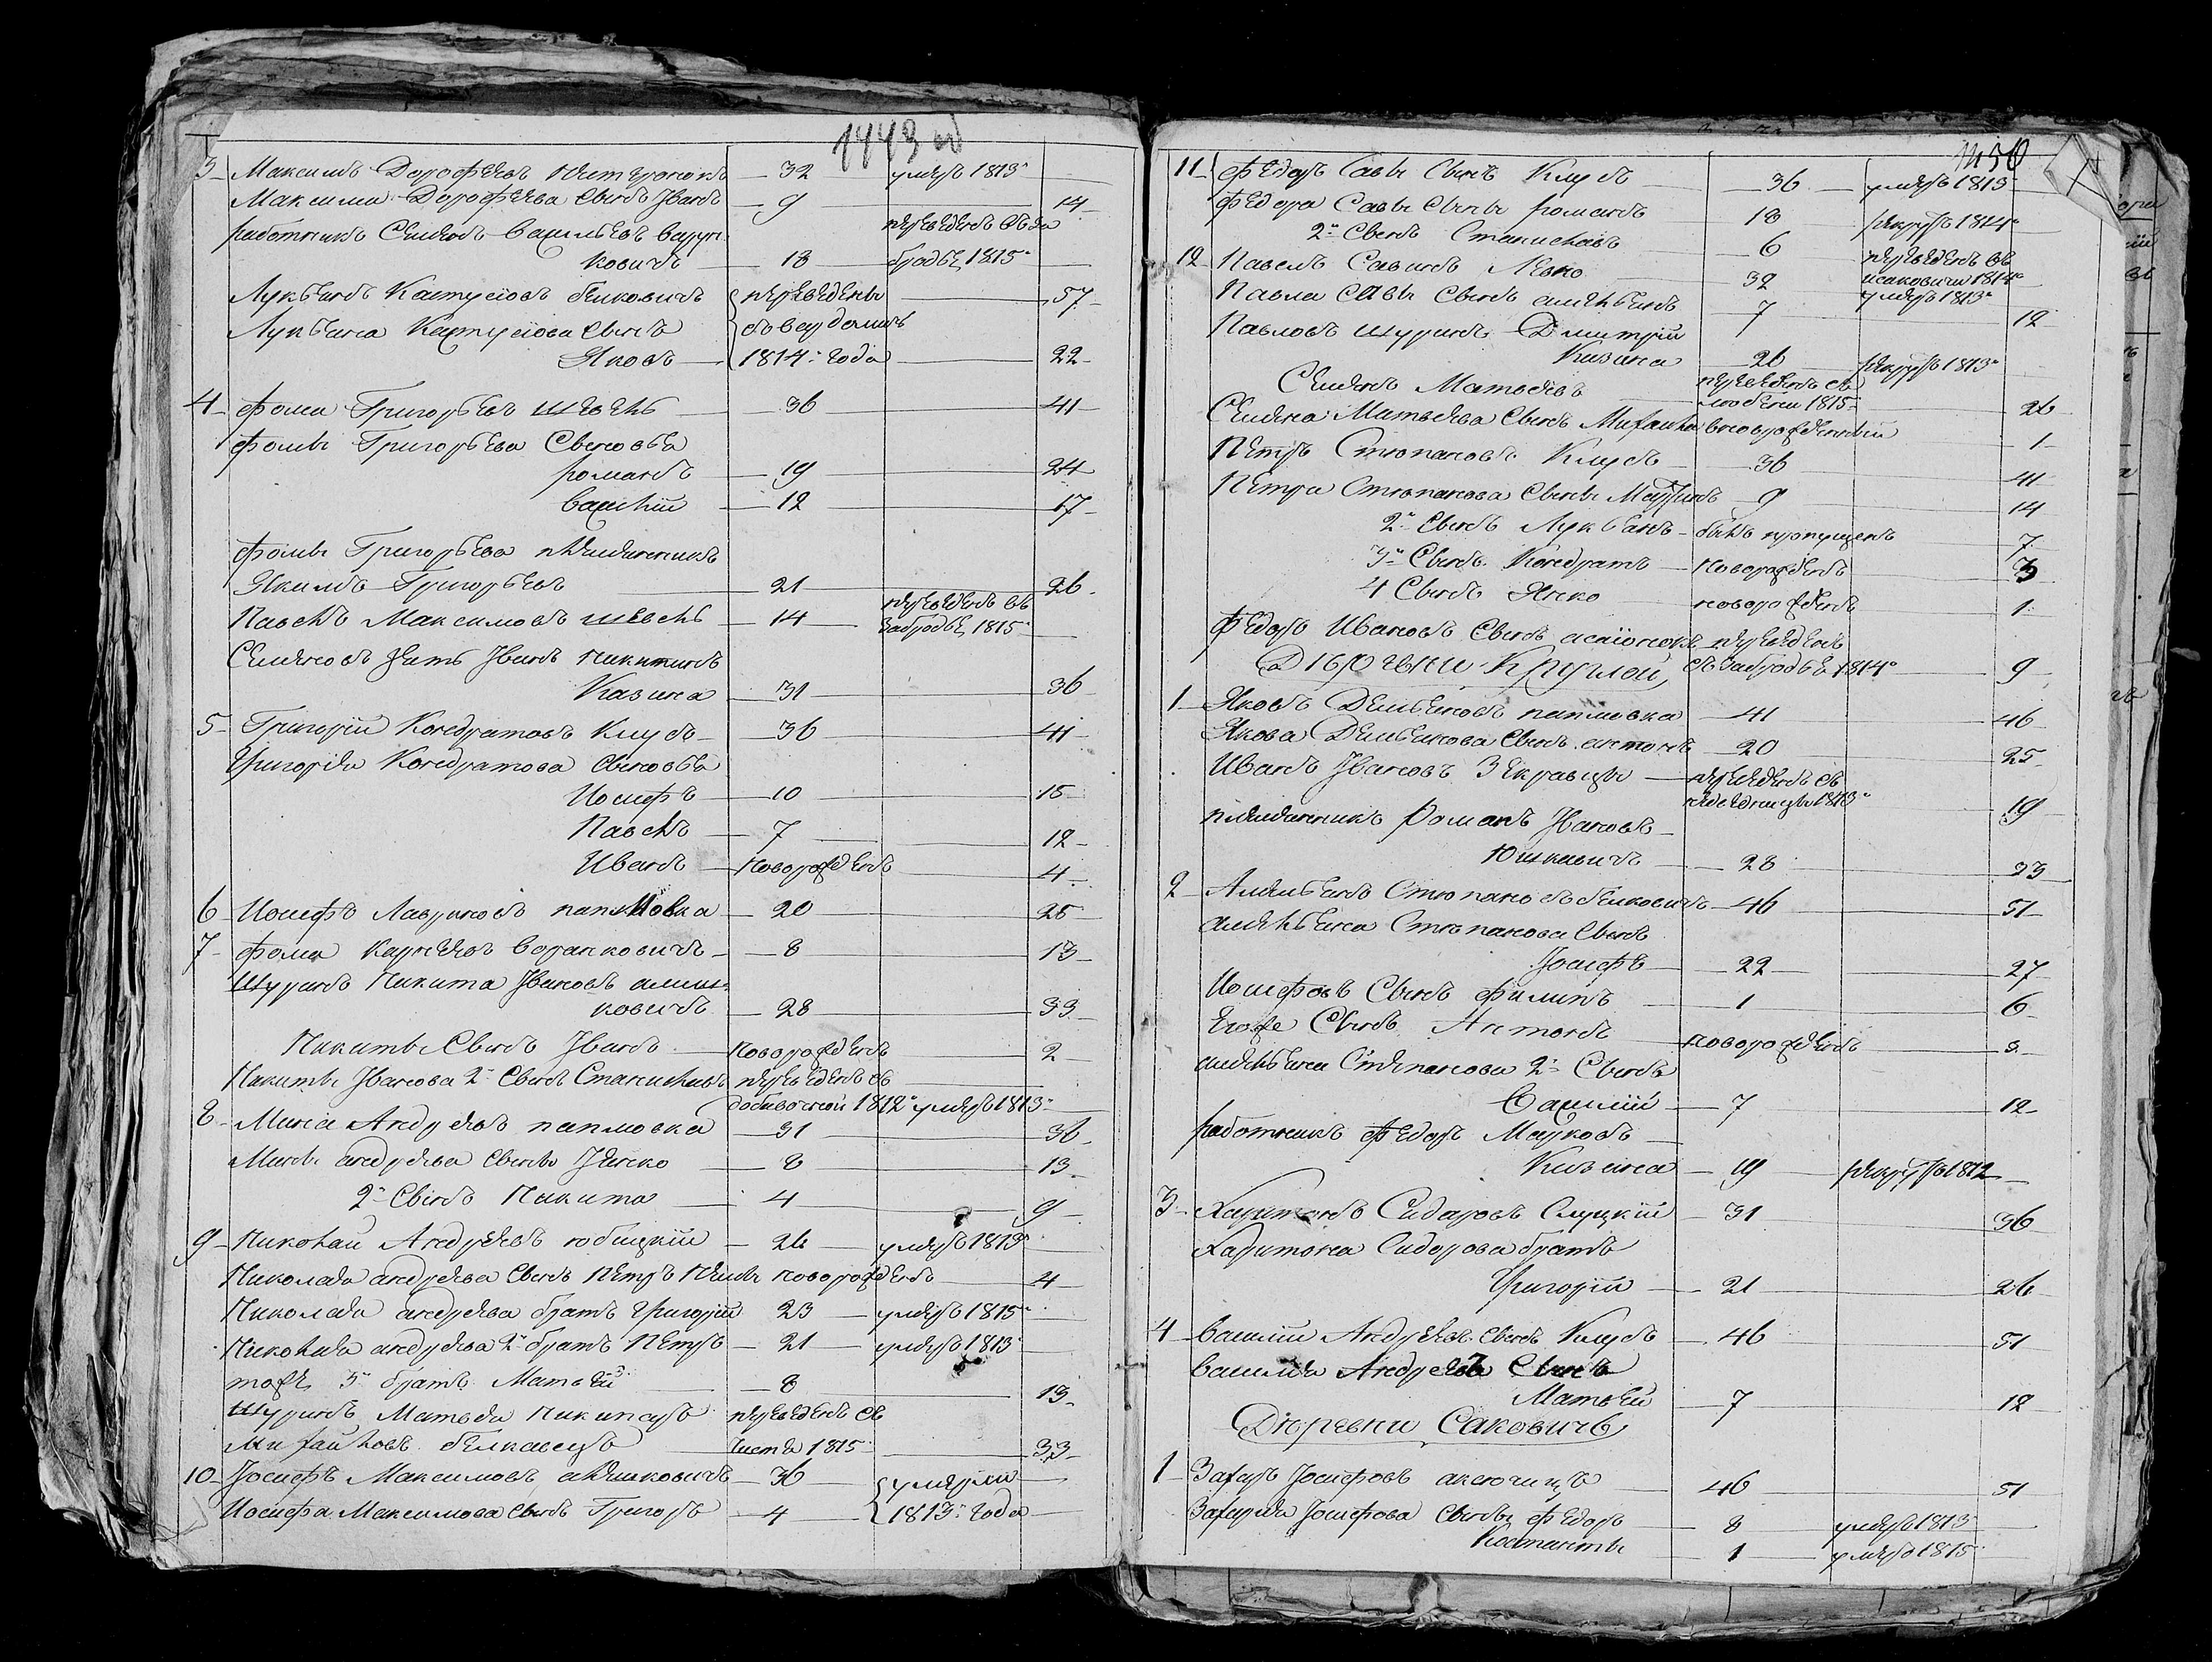 3 Максимъ Дорофеевъ Нестеронокъ 32 умеръ 1813°
Максима Дорофеева сынъ Иванъ 9 14
работникъ Семенъ Васильевъ
ковичъ 18 переведенъ въ За
бродье 1815°
Лукьянъ Бѣлковичъ переведены 57
Лукьяна сынъ
Яковъ 1814° года 22
4 Фома Григорьевъ Швецъ 36 41
Фомы Григорьева сыновья
Романъ 19 24
Василій 12 17
Фомы Григорьева племянникъ
Якимъ Григорьевъ 21 26
Павелъ Максимовъ Швецъ 14 переведенъ въ
Забродье 1815
Семеновъ зять Иванъ Никитинъ
Казина 31 36
5 Григорій Кондратовъ Клубъ 36 41
Григорія Кондратова сыновья
Иосифъ 10 15
Павелъ 7 12
Иванъ новорожденъ 4
6 Иосифъ Лавриновъ Папловка 20 25
7 Фома Карнеевъ Воранковичъ 8 13
Шуринъ Никита Ивановъ
ковичъ 28 33
Никиты сынъ Иванъ новорожденъ 2
Никиты Иванова 2° сынъ Станиславъ переведенъ въ
1812° умеръ 1813°
8 Мина Андреевъ Папловка 31 36
Мины Андреева сынъ Янко 8 13
2° сынъ Никита 4 9
9 Николай Андреевъ 26 умеръ 1813°
Николая Андреева сынъ Петръ новорожденъ 4
Николая Андреева братъ Григорій 23 умеръ 1815°
Николая Андреева 2° братъ Петръ 21 умеръ 1813°
тожъ 3° братъ Матвѣй 8 13
Шуринъ Матвея переведенъ съ
Михайловъ 1815° 33
10 Іосифъ Максимовъ 36 умерли
Иосифа Максимова сынъ Григоръ 4 1813° года
1450
11 Федоръ Савы сынъ Клубъ 36 умеръ 1813
Федора Савы сыны Романъ 18 рекрутъ 1814°
2° сынъ Станиславъ 6 переведенъ въ
Исаковичи 1814°
12 Павелъ Савинъ Левко 32 умеръ 1813°
Павла Савы сынъ 7 12
Павловъ шуринъ Дмитрій
Казина 26 рекрутъ 1813°
Семенъ Матвѣевъ переведенъ съ
1815° 26
Семена Матвѣева сынъ Михаила новорожденный 1
Петръ Стюпановъ Клубъ 36 41
Петра Стюпанова сыны Мартинъ 9 14
2° сынъ Лукьянъ былъ пропущенъ 7
3° сынъ Кондратъ новорожденъ 3
4 сынъ Янко новорожденъ 1
Федоръ Ивановъ сынъ переведенъ
съ Забродья 1814° 9
Дѣревни Круглой
1 Яковъ Демьяновъ Папловка 41 46
Якова Демьянова сынъ Антонъ 20 25
Иванъ Ивановъ переведенъ съ
1813° 19
племянникъ Романъ Ивановъ
Юшкевичъ 28 33
2 Амельянъ Стюпановъ Бѣлковичъ 46 51
Амельяна Стюпанова сынъ
Іосифъ 22 27
Иосифовъ сынъ Филипъ 1 6
Егоже сынъ Антонъ новорожденъ 3
Амельяна Стюпанова 2° сынъ
Василій 7 12
работникъ Федоръ Марковъ
Казина 19 рекрутъ 1812
3 Харитонъ Сидоровъ Слуцкій 31 36
Харитона Сидорова братъ
Григорій 21 26
4 Василій Андреевъ сынъ Клубъ 46 51
Василія Андреева сынъ
Матвѣй 7 12
Дюревни Саковичъ
1 Захаръ Іосифовъ Аксючицъ 46 51
Захарія Іосифова сыны Федоръ 8 умеръ 1813
Костанты 1 умеръ 1815